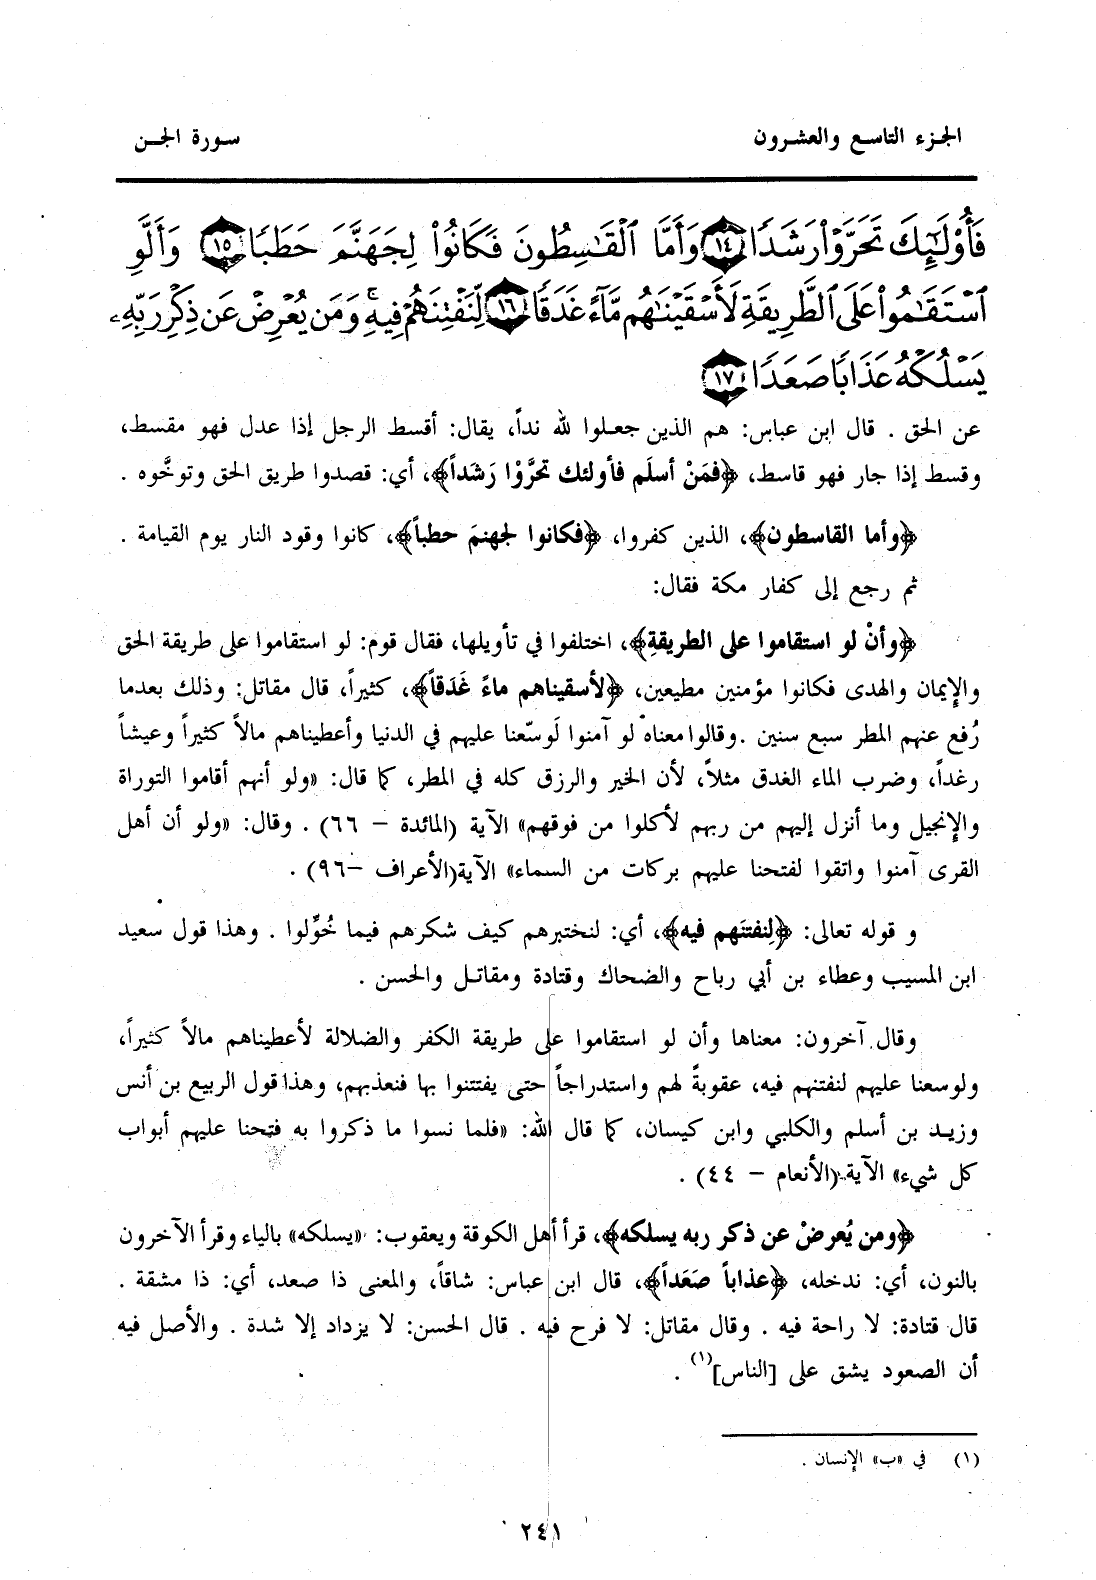 الجزء التاسع والعشرون
سورة الجن
فَأُوْلَٰٓئِكَ تَحَرَّوْا۟ رَشَدًا ١٤ وَأَمَّا ٱلْقَٰسِطُونَ فَكَانُوا۟ لِجَهَنَّمَ حَطَبًا ١٥ وَأَلَّوِ
ٱسْتَقَٰمُوا۟ عَلَى ٱلطَّرِيقَةِ لَأَسْقَيْنَٰهُم مَّآءً غَدَقًا ١٦ لِّنَفْتِنَهُمْ فِيهِ ۚ وَمَن يُعْرِضْ عَن ذِكْرِ رَبِّهِۦ
يَسْلُكْهُ عَذَابًا صَعَدًا ١٧
عن الحق . قال ابن عباس: هم الذين جعلوا لله نداً، يقال: أقسط الرجل إذا عدل فهو مقسط،
وقسط إذا جار فهو قاسط، ﴿فمَنْ أسلَم فأولئك تحرَّوْا رَشَداً﴾، أي: قصدوا طريق الحق وتوخَّوه .
﴿وأما القاسطون﴾، الذين كفروا، ﴿فكانوا لجهنمَ حطباً﴾، كانوا وقود النار يوم القيامة .
ثم رجع إلى كفار مكة فقال:
﴿وأنْ لو استقاموا على الطريقةِ﴾، اختلفوا في تأويلها، فقال قوم: لو استقاموا على طريقة الحق
والإيمان والهدى فكانوا مؤمنين مطيعين، ﴿لأسقيناهم ماءً غَدَقاً﴾، كثيراً، قال مقاتل: وذلك بعدما
رُفع عنهم المطر سبع سنين .وقالوا معناه لو آمنوا لَوسّعنا عليهم في الدنيا وأعطيناهم مالاً كثيراً وعيشاً
رغداً، وضرب الماء الغدق مثلاً، لأن الخير والرزق كله في المطر، كما قال: «ولو أنهم أقاموا التوراة
والإنجيل وما أنزل إليهم من ربهم لأكلوا من فوقهم» الآية (المائدة – ٦٦) . وقال: «ولو أن أهل
القرى آمنوا واتقوا لفتحنا عليهم بركات من السماء» الآية(الأعراف –٩٦) .
و قوله تعالى: ﴿لِنفتنَهم فيه﴾، أي: لنختبرهم كيف شكرهم فيما خُوِّلوا . وهذا قول سعيد
ابن المسيب وعطاء بن أبي رباح والضحاك وقتادة ومقاتل والحسن .
وقال آخرون: معناها وأن لو استقاموا على طريقة الكفر والضلالة لأعطيناهم مالاً كثيراً،
ولوسعنا عليهم لنفتنهم فيه، عقوبةً لهم واستدراجاً حتى يفتتنوا بها فنعذبهم، وهذا قول الربيع بن أنس
وزيد بن أسلم والكلبي وابن كيسان، كما قال الله: «فلما نسوا ما ذكروا به فتحنا عليهم أبواب
كل شيء» الآية (الأنعام – ٤٤) .
﴿ومن يُعرضْ عن ذكر ربه يسلكه﴾، قرأ أهل الكوفة ويعقوب: «يسلكه» بالياء وقرأ الآخرون
بالنون، أي: ندخله، ﴿عذاباً صَعَداً﴾، قال ابن عباس: شاقاً، والمعنى ذا صعد، أي: ذا مشقة .
قال قتادة: لا راحة فيه . وقال مقاتل: لا فرح فيه . قال الحسن: لا يزداد إلا شدة . والأصل فيه
أن الصعود يشق على [الناس](١) .
(١) في «ب» الإنسان .
٢٤١